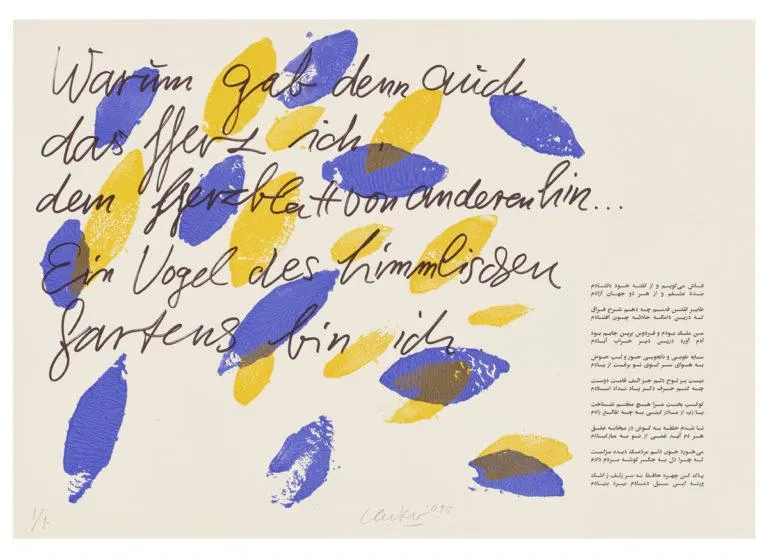 Warum gab denn auch
das Herz ich,
dem Herzblatt von anderen hin...
Ein Vogel des himmlischen
Gartens bin ich
فاش می‌گویم و از گفته خود دلشادم
بندهٔ عشقم و از هر دو جهان آزادم
طایر گلشن قدسم چه دهم شرح فراق
که درین دامگه حادثه چون افتادم
من ملک بودم و فردوس برین جایم بود
آدم آورد درین دیر خراب آبادم
سایه طوبی و دلجویی حور و لب حوض
به هوای سر کوی تو برفت از یادم
نیست بر لوح دلم جز الف قامت دوست
چه کنم حرف دگر یاد نداد استادم
کوکب بخت مرا هیچ منجّم نشناخت
یا رب از مادر گیتی به چه طالع زادم
تا شدم حلقه به گوش در میخانه عشق
هر دم آید غمی از نو به مبارکبادم
می‌خورد خون دلم مردمک دیده سزاست
که چرا دل به جگر گوشه مردم دادم
پاک کن چهره حافظ به سر زلف ز اشک
ورنه این سیل دمادم ببرد بنیادم
Uecker '015